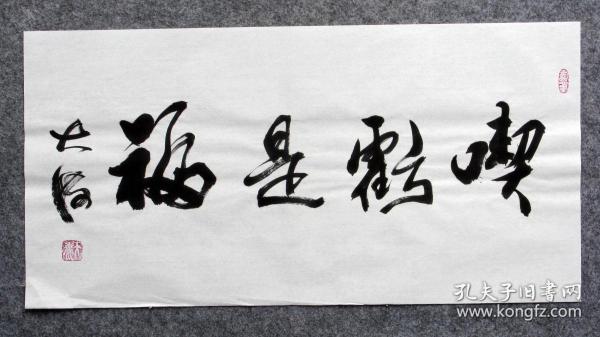 喫虧是福
大海
孔夫子旧书网
www.kongfz.com